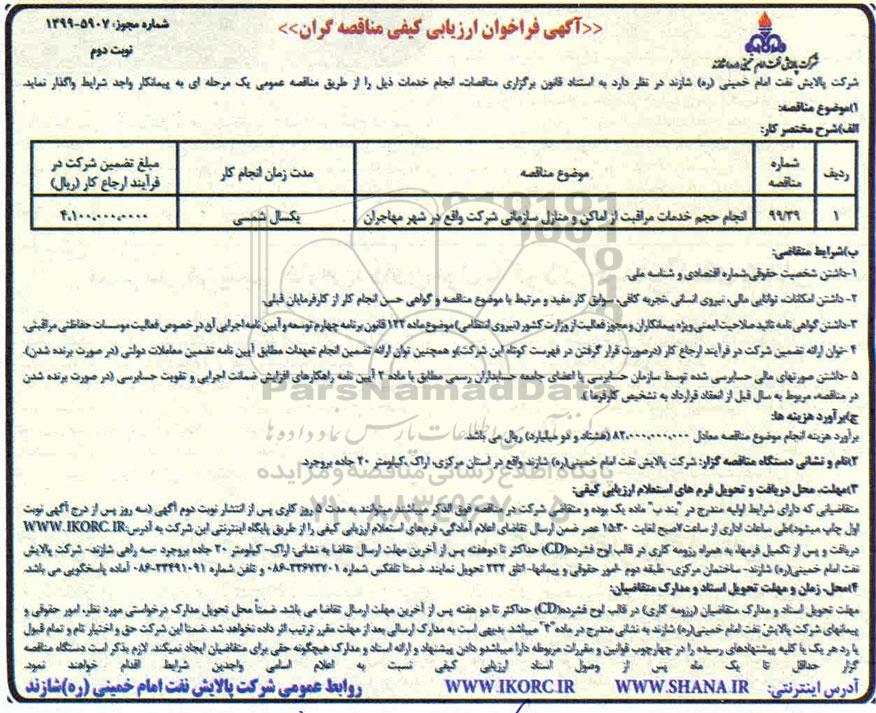 <<آگهی فراخوان ارزیابی کیفی مناقصه گران>>
شماره مجوز: ۵۹۰۷-۱۳۹۹
نوبت دوم
شرکت پالایش نفت امام خمینی (ره) شازند
شرکت پالایش نفت امام خمینی (ره) شازند در نظر دارد به استناد قانون برگزاری مناقصات، انجام خدمات ذیل را از طریق مناقصه عمومی یک مرحله ای به پیمانکار واجد شرایط واگذار نماید.
۱)موضوع مناقصه:
الف)شرح مختصر کار:
ردیف	شماره مناقصه	موضوع مناقصه	مدت زمان انجام کار	مبلغ تضمین شرکت در فرآیند ارجاع کار (ریال)
۱	۹۹/۳۹	انجام حجم خدمات مراقبت از اماکن و منازل سازمانی شرکت واقع در شهر مهاجران	یکسال شمسی	۴.۱۰۰.۰۰۰.۰۰۰۰
ب)شرایط متقاضی:
۱-داشتن شخصیت حقوقی،شماره اقتصادی و شناسه ملی.
۲- داشتن امکانات، توانایی مالی، نیروی انسانی ،تجربه کافی، سوابق کار مفید و مرتبط با موضوع مناقصه و گواهی حسن انجام کار از کارفرمایان قبلی.
۳-داشتن گواهی نامه تائید صلاحیت ایمنی ویژه پیمانکاران و مجوز فعالیت از وزارت کشور (نیروی انتظامی) موضوع ماده ۱۲۲ قانون برنامه چهارم توسعه و آیین نامه اجرایی آن در خصوص فعالیت موسسات حفاظتی مراقبتی.
۴ -توان ارائه تضمین شرکت در فرآیند ارجاع کار (درصورت قرار گرفتن در فهرست کوتاه این شرکت)و همچنین توان ارائه تضمین انجام تعهدات مطابق آیین نامه تضمین معاملات دولتی (در صورت برنده شدن).
۵ -داشتن صورتهای مالی حسابرسی شده توسط سازمان حسابرسی یا اعضای جامعه حسابداران رسمی مطابق با ماده ۲ آیین نامه راهکارهای افزایش ضمانت اجرایی و تقویت حسابرسی (در صورت برنده شدن
در مناقصه، مربوط به سال قبل از انعقاد قرارداد به تشخیص کارفرما ).
ج)برآورد هزینه ها:
برآورد هزینه انجام موضوع مناقصه معادل ۸۲.۰۰۰.۰۰۰.۰۰۰ (هشتاد و دو میلیارد) ریال می باشد.
۲)نام و نشانی دستگاه مناقصه گزار: شرکت پالایش نفت امام خمینی(ره) شازند واقع در استان مرکزی، اراک ،کیلومتر ۲۰ جاده بروجرد.
۳)مهلت، محل دریافت و تحویل فرم های استعلام ارزیابی کیفی:
متقاضیانی که دارای شرایط اولیه مندرج در "بند ب" ماده یک بوده و متقاضی شرکت در مناقصه فوق الذکر میباشند میتوانند به مدت ۵ روز کاری پس از انتشار نوبت دوم آگهی (سه روز پس از درج آگهی نوبت
اول چاپ میشود)طی ساعات اداری از ساعت۷صبح لغایت ۱۵:۳۰ عصر ضمن ارسال تقاضای اعلام آمادگی، فرم‌های استعلام ارزیابی کیفی را از طریق پایگاه اینترنتی این شرکت به آدرس:WWW.IKORC.IR
دریافت و پس از تکمیل فرمها، به همراه رزومه کاری در قالب لوح فشرده(CD) حداکثر تا دوهفته پس از آخرین مهلت ارسال تقاضا به نشانی: اراک- کیلومتر ۲۰ جاده بروجرد -سه راهی شازند- شرکت پالایش
نفت امام خمینی(ره) شازند- ساختمان مرکزی- طبقه دوم -امور حقوقی و پیمانها- اتاق ۲۳۲ تحویل نمایند. ضمنا تلفکس شماره ۳۳۶۷۳۷۰۱-۰۸۶ و تلفن شماره ۳۳۴۹۱۰۹۱-۰۸۶ آماده پاسخگویی می باشد.
۴)محل، زمان و مهلت تحویل اسناد و مدارک متقاضیان:
مهلت تحویل اسناد و مدارک متقاضیان (رزومه کاری) در قالب لوح فشرده(CD) حداکثر تا دو هفته پس از آخرین مهلت ارسال تقاضا می باشد. ضمناً محل تحویل مدارک درخواستی مورد نظر، امور حقوقی و
پیمانهای شرکت پالایش نفت امام خمینی(ره) شازند به نشانی مندرج در ماده"۳" میباشد. بدیهی است به مدارک ارسالی بعد از مهلت مقرر ترتیب اثر داده نخواهد شد. ضمنا این شرکت حق و اختیار تام و تمام قبول
یا رد هر یک یا کلیه پیشنهادهای رسیده را در چهارچوب قوانین و مقررات مربوطه دارا میباشد و دادن پیشنهاد و ارائه اسناد و مدارک هیچگونه حقی برای متقاضیان ایجاد نمیکند. لازم بذکر است دستگاه مناقصه
گزار حداقل تا یک ماه پس از وصول اسناد ارزیابی کیفی نسبت به اعلام اسامی واجدین شرایط اقدام خواهند نمود.
آدرس اینترنتی: WWW.SHANA.IR WWW.IKORC.IR روابط عمومی شرکت پالایش نفت امام خمینی (ره)شازند
ParsNamadData
مرکز فرآوری اطلاعات پارس نماد داده ها
پایگاه اطلاع رسانی مناقصه و مزایده